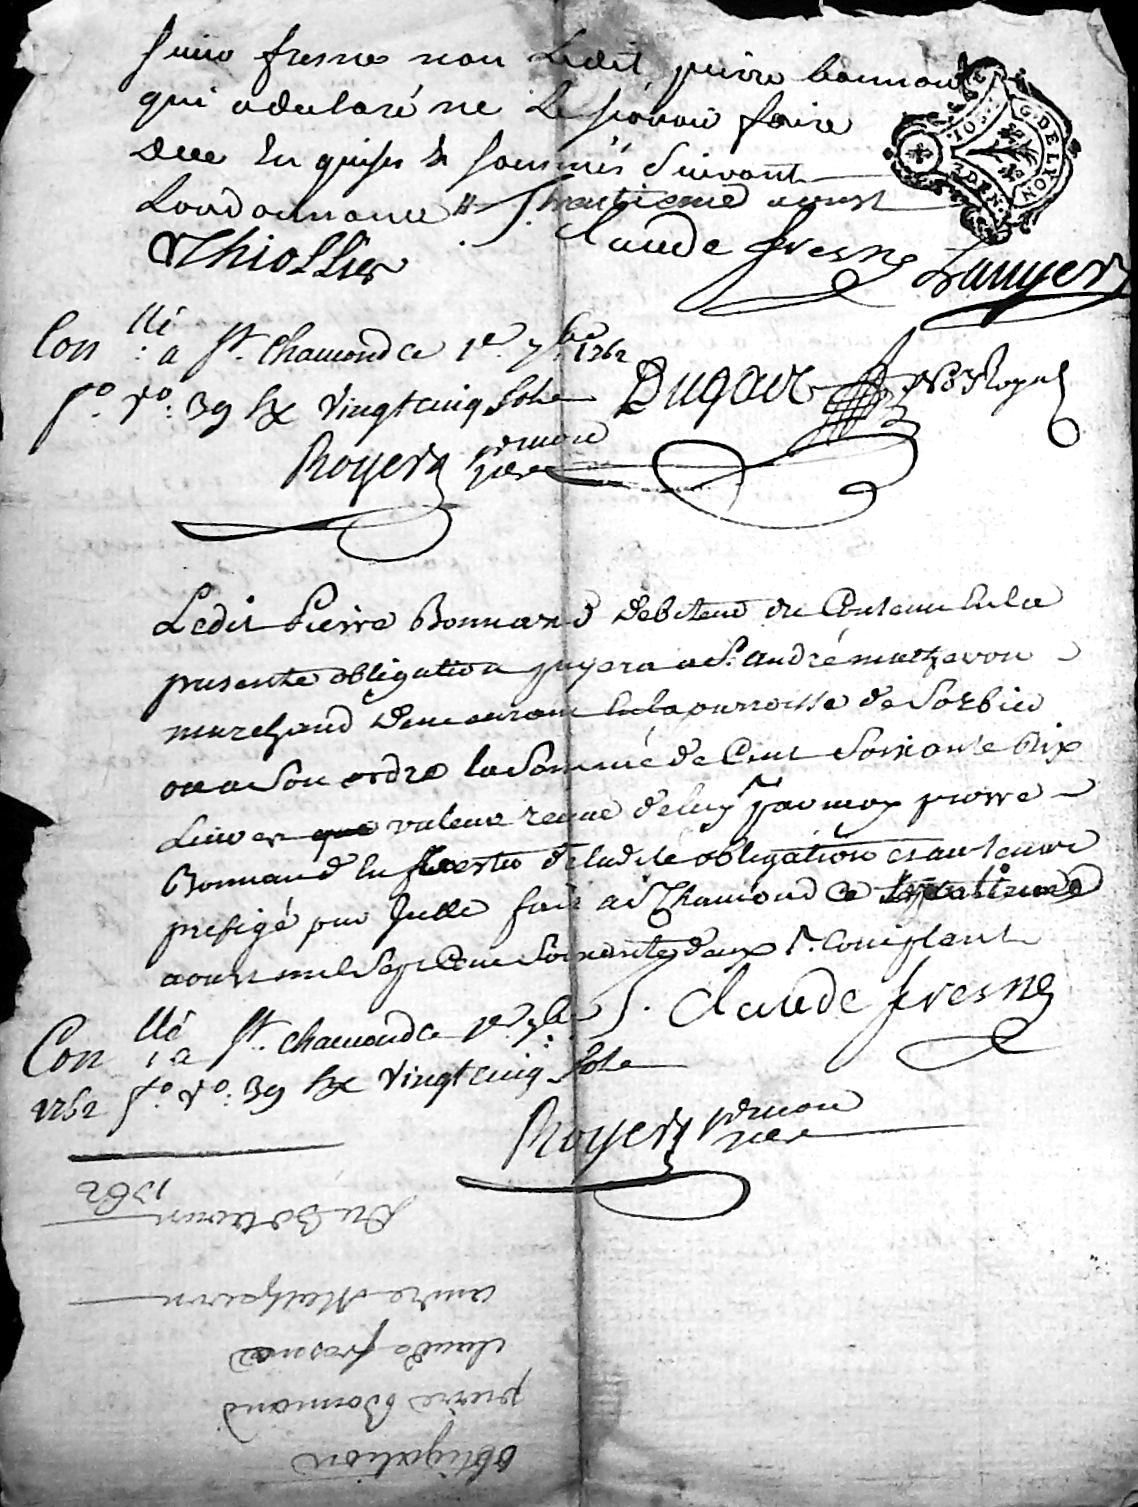 Sieur fresne non Ledit pierre bonnand
qui a declaré ne Le sçavoir faire
De ce Enquis & sommés Suivant
Lordonnance S. trentieme aoust
Thiollier claude fresne Lanyer
G. DE LYON
Con llé a St. Chamond ce 1er 7bre 1762
fo. vo. 39 Rx Vingt cinq Sols Dugas No Royal
Royer
Ledit Pierre Bonnand debiteur du Contenu En la
presente obligation payera a Sr. andré mathevon
marchand demeurant En la parroisse de Sorbier
ou a Son ordre la Somme de Cent Soixante Dix
Livres valeur recue de luy par moy pierre
Bonnand En de ladite obligation et au terme
prefigé par Jcelle fait a St Chamond ce
aoust mil Sept Cent Soixante deux
S. Claude fresne
Con llé a St. Chamond ce 1er 7bre
1762 fo. vo. 39 Rx Vingt cinq Sols
Royer
obligation
pierre Bonnand
claude fresne
andre Mathevon
Du 30 aoust
1762